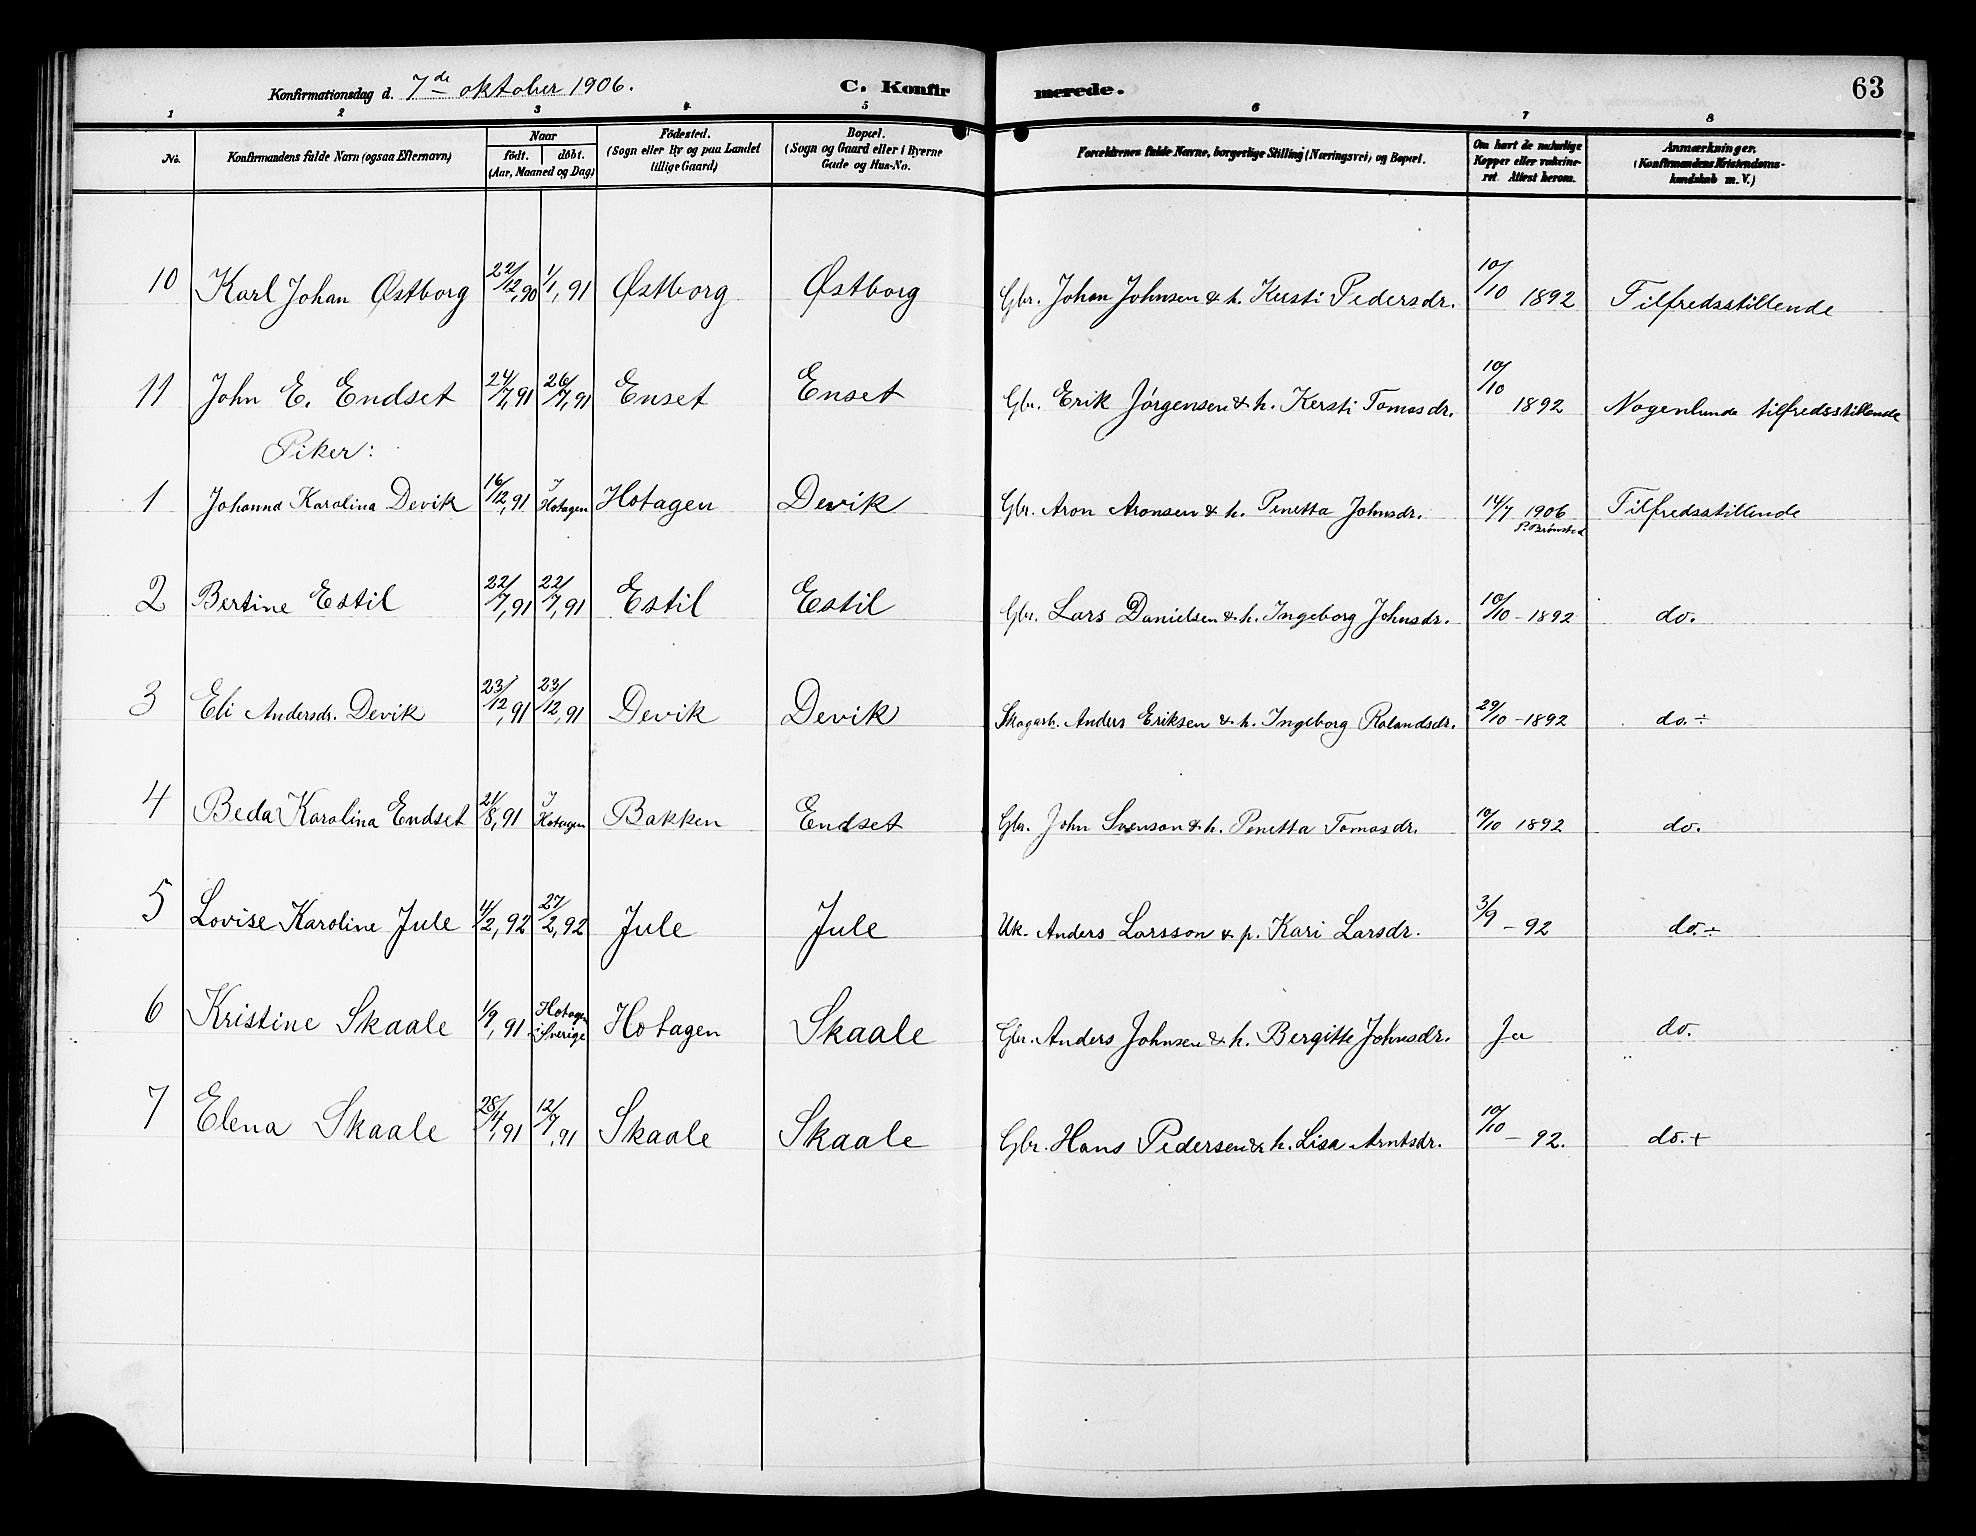 Konfirmationsdag d. 7de oktober 1906. C. Konfirmerede. 63
1 2 3 4 5 6 7 8
No. Konfirmandens fulde Navn (ogsaa Efternavn) Naar født. døbt. (Aar, Maaned og Dag) Födested. (Sogn eller By og paa Landet tillige Gaard) Bopæl. (Sogn og Gaard eller i Byerne Gade og Hus-No. Forældrenes fulde Navne, borgerlige Stilling (Næringsvei) og Bopæl. Om havt de naturlige Kopper eller vakcineret. Attest herom. Anmærkninger. (Konfirmandens Kristendomskundskab m. V.)
10 Karl Johan Østborg 22/12, 90 1/1, 91 Østborg Østborg Gbr. Johan Johnsen & h. Kersti Pedersdr. 10/10 1892 Tilfredsstillende
11 John E. Endset 24/7, 91 26/7, 91 Enset Enset Gbr. Erik Jörgensen & h. Kersti Tomasdr. 10/10 1892 Nogenlunde tilfredsstillende
Piker:
1 Johanna Karolina Devik 16/12, 91 I Hotagen Hotagen Devik Gbr. Aron Aronsen & h. Penetta Johnsdr. 14/7 1906 P. Brønsted Tilfredsstillende
2 Bertine Estil 22/7, 91 22/7, 91 Estil Estil Gbr. Lars Danielsen & h. Ingeborg Johnsdr. 10/10 - 1892 do.
3 Eli Andersdr. Devik 23/12, 91 23/12, 91 Devik Devik Skogarb. Anders Eriksen & h. Ingeborg Rolandsdr. 29/10 - 1892 do. ÷
4 Beda Karolina Endset 21/8, 91 I Hotagen Bakken Endset Gbr. John Svenson & h. Penetta Tomasdr. 10/10 1892 do.
5 Lovise Karoline Jule 11/2, 92 27/2, 92 Jule Jule Uk. Anders Larsson & p. Kari Larsdr. 3/9 - 92 do. ÷
6 Kristine Skaale 1/9, 91 Hotagen i Sverige Hotagen Skaale Gbr. Anders Johnsen & h. Bergitte Johnsdr. Ja do.
7 Elena Skaale 28/4, 91 12/7, 91 Skaale Skaale Gbr. Hans Pedersen & h. Lisa Arntsdr. 10/10 - 92. do. +